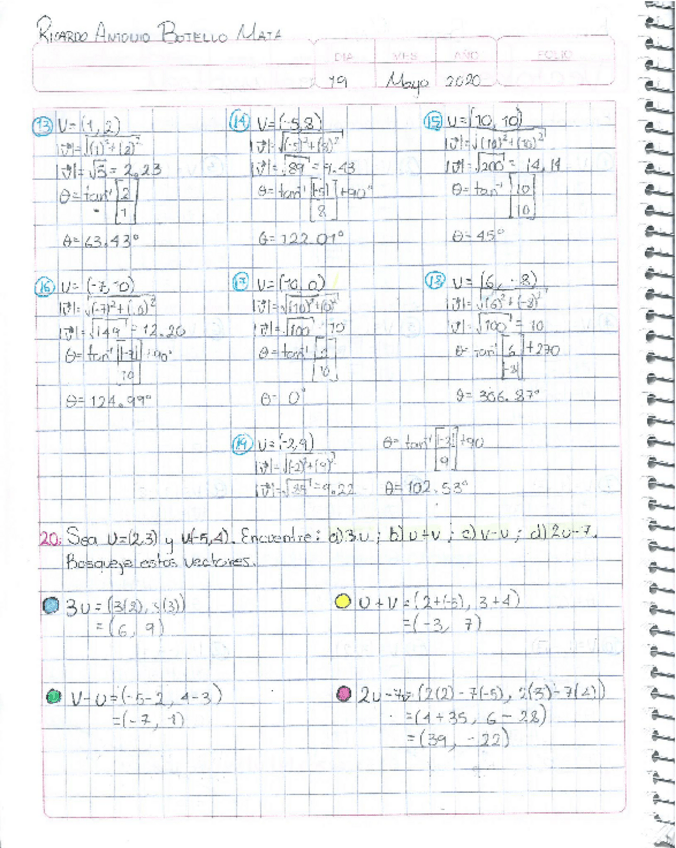 RICARDO ANTONIO BOTELLO MATA
DIA MES AÑO FOLIO
19 Mayo 2020
13 V=(1, 2)
|v|=√(1)²+(2)²
|v|=√5=2.23
θ=tan⁻¹[2
1]
θ=63.43°
14 V=(-5,8)
|v|=√(-5)²+(8)²
|v|=√89=9.43
θ=tan⁻¹[|-5|
8]+90°
θ=122.01°
15 V=(10, 10)
|v|=√(10)²+(10)²
|v|=√200=14.14
θ=tan⁻¹[10
10]
θ=45°
16
|v|=√149=12.20
θ=124.99°
17
|v|=√100 10
θ=0°
18 V=(6, -8)
|v|=√(6)²+(-8)²
|v|=√100=10
θ=306.87°
19 V=(-2,9)
|v|=√(-2)²+(9)²
|v|=√85=9.22
θ=tan⁻¹[-2
9]+90
θ=102.53°
20. Sea U=(2,3) y V(-5,4). Encuentre: a)3u; b)u+v; c)v-u; d)2u-7.
Bosqueje estos vectores.
3U=(3(2), 3(3))
=(6, 9)
U+V=(2+(-5), 3+4)
=(-3, 7)
V-U=(-5-2, 4-3)
=(-7, 1)
2u-7v=(2(2)-7(-5), 2(3)-7(4))
=(4+35, 6-28)
=(39, -22)